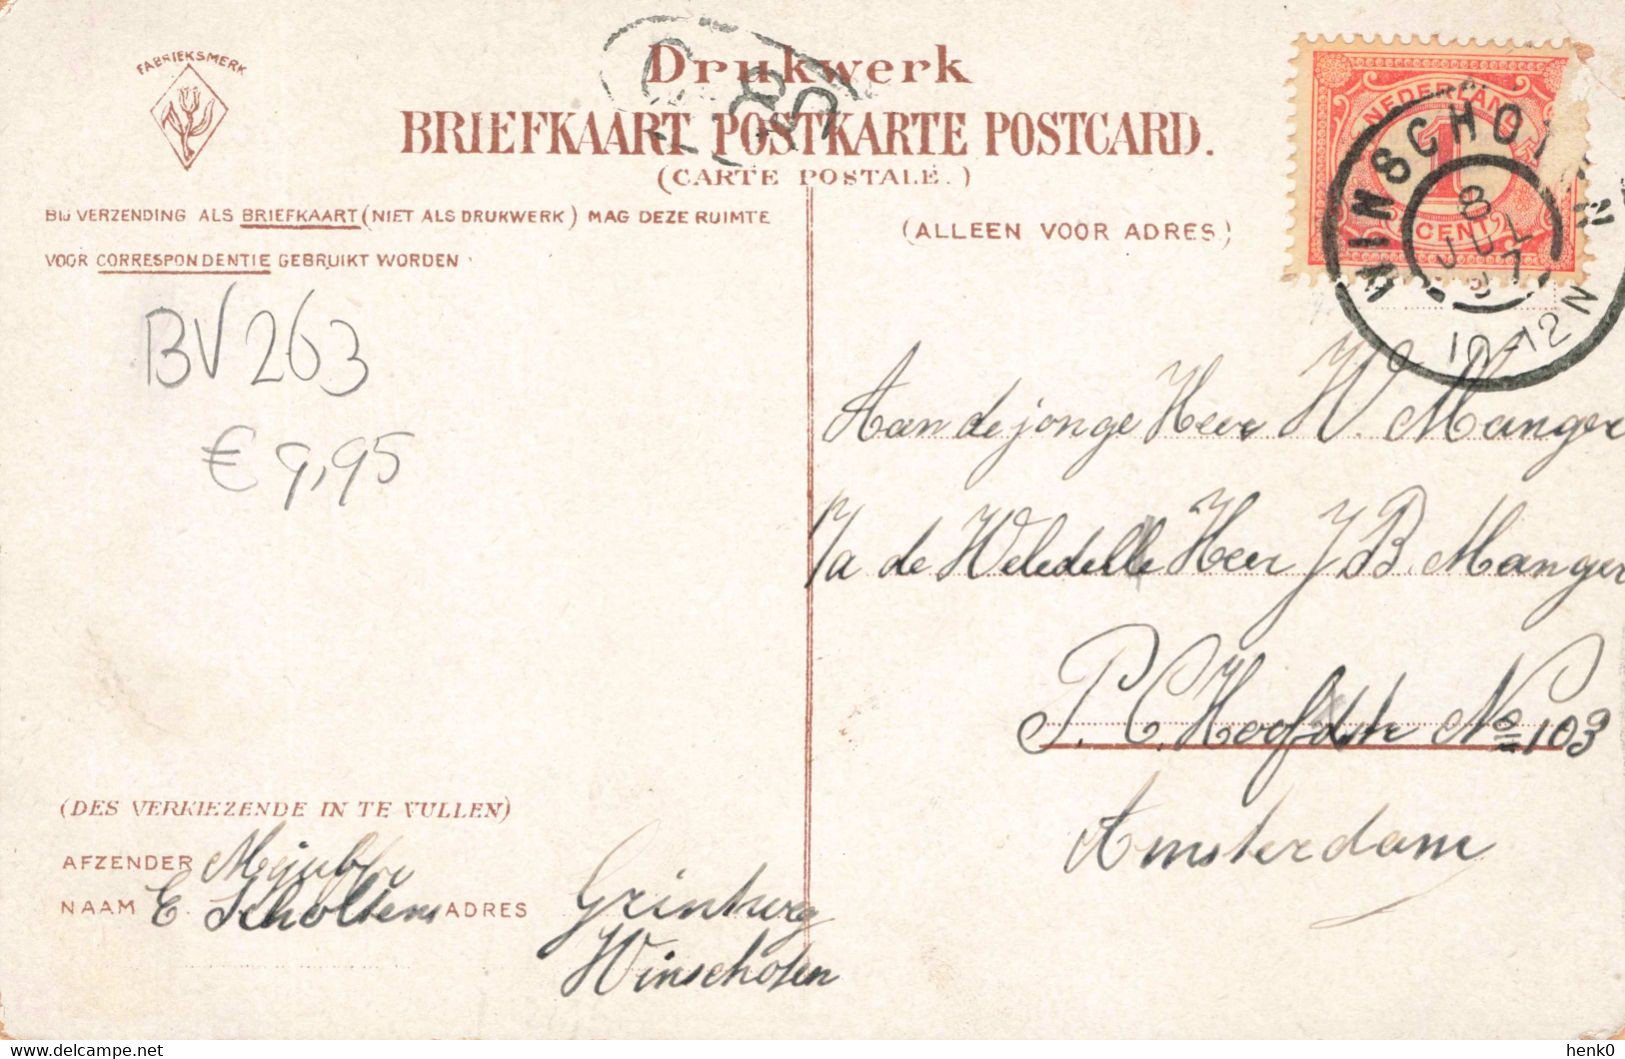 FABRIEKSMERK
Drukwerk
BRIEFKAART POSTKARTE POSTCARD.
(CARTE POSTALE.)
BIJ VERZENDING ALS BRIEFKAART (NIET ALS DRUKWERK) MAG DEZE RUIMTE
VOOR CORRESPONDENTIE GEBRUIKT WORDEN
(ALLEEN VOOR ADRES.)
NEDERLAND
1
CENT
WINSCHOTEN
8
JUL
10-12 N
BV 263
€ 9,95
Aan de jonge Heer W. Manger
P/a de Weledelle Heer J B. Manger
P. C. Hooftstr No 103
Amsterdam
(DES VERKIEZENDE IN TE VULLEN)
AFZENDER Mejubfr
NAAM E. Scholtens ADRES
Winschoten
delcampe.net
henk0